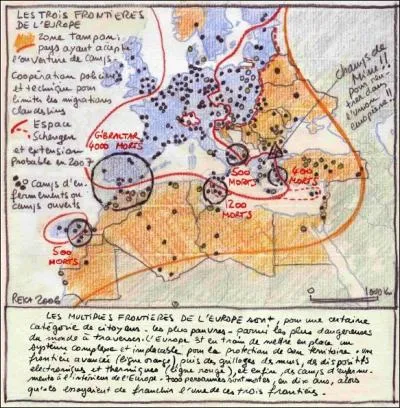 LES TROIS FRONTIÈRES
DE L'EUROPE
Zone Tampon:
pays ayant accepté
l'ouverture de camps.
Coopération policière
et technique pour
limiter les migrations
clandestines
Espace
Schengen
et extension
probable en 2007
Camps d'en-
fermements ou
camps ouverts
GIBRALTAR
4000 MORTS
500
MORTS
500
MORTS
1200
MORTS
400
MORTS
champs de
Mine!!
pour
dans
l'union
européenne
1000 Km
REKA 2006
LES MULTIPLES FRONTIÈRES DE L'EUROPE SONT, pour une certaine
catégorie de citoyens - les plus pauvres - parmi les plus dangereuses
du monde à traverser. L'EUROPE est en train de mettre en place un
système complexe et implacable pour la protection de son territoire: une
frontière avancée (ligne orange), puis des grillages, des murs, des dispositifs
électroniques et thermiques (ligne rouge), et enfin des camps d'enferme-
ments à l'intérieur de l'Europe. 7000 personnes sont mortes, en dix ans, alors
qu'elles essayaient de franchir l'une de ces trois frontières.